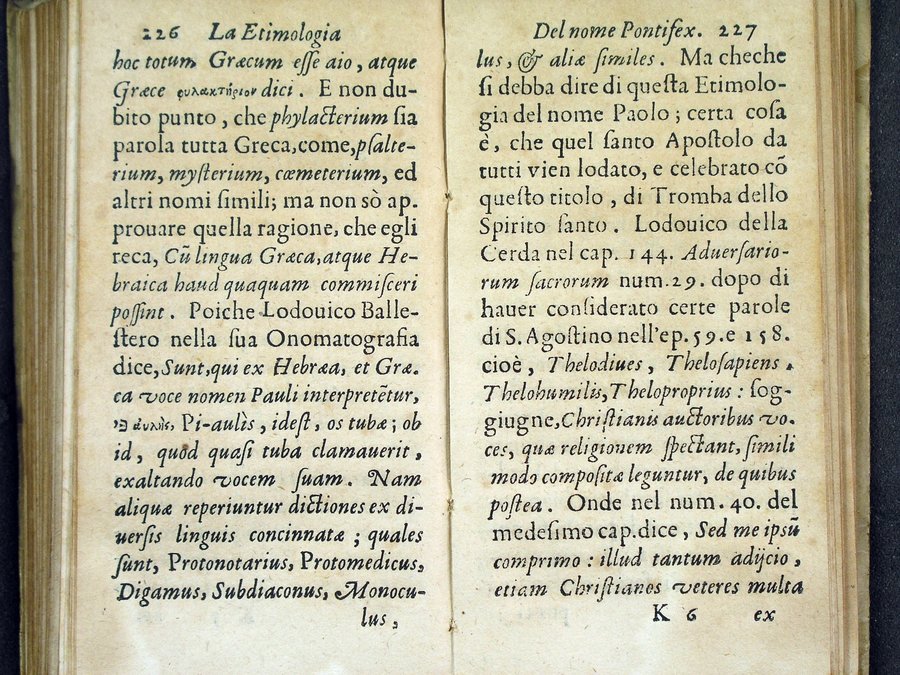 226 La Etimologia
hoc totum Græcum eſſe aio, atque
Græce φυλακτήριον dici. E non du-
bito punto, che phylacterium ſia
parola tutta Greca, come, pſalte-
rium, myſterium, cœmeterium, ed
altri nomi ſimili; ma non sò ap.
prouare quella ragione, che egli
reca, Cũ lingua Græca, atque He-
braica haud quaquam commiſceri
poſſint. Poiche Lodouico Balle-
ſtero nella ſua Onomatografia
dice, Sunt, qui ex Hebræa, et Græ.
ca voce nomen Pauli interpretẽtur,
פי αυλὴς, Pi-aulès, ideſt, os tubæ; ob
id, quòd quaſi tuba clamauerit,
exaltando vocem ſuam. Nam
aliquæ reperiuntur dictiones ex di-
uerſis linguis concinnatæ; quales
ſunt, Protonotarius, Protomedicus,
Digamus, Subdiaconus, Monocu-
lus,
Del nome Pontifex. 227
lus, & aliæ ſimiles. Ma cheche
ſi debba dire di queſta Etimolo-
gia del nome Paolo; certa coſa
è, che quel ſanto Apoſtolo da
tutti vien lodato, e celebrato cõ
queſto titolo, di Tromba dello
Spirito ſanto. Lodouico della
Cerda nel cap. 144. Aduerſario-
rum ſacrorum num. 29. dopo di
hauer conſiderato certe parole
di S. Agoſtino nell'ep. 59. e 158.
cioè, Thelodiues, Theloſapiens,
Thelohumilis, Theloproprius: ſog-
giugne, Chriſtianis auctoribus vo-
ces, quæ religionem ſpectant, ſimili
modo compoſitæ leguntur, de quibus
poſtea. Onde nel num. 40. del
medeſimo cap. dice, Sed me ipsũ
comprimo: illud tantum adijcio,
etiam Chriſtianos veteres multa
K 6 ex